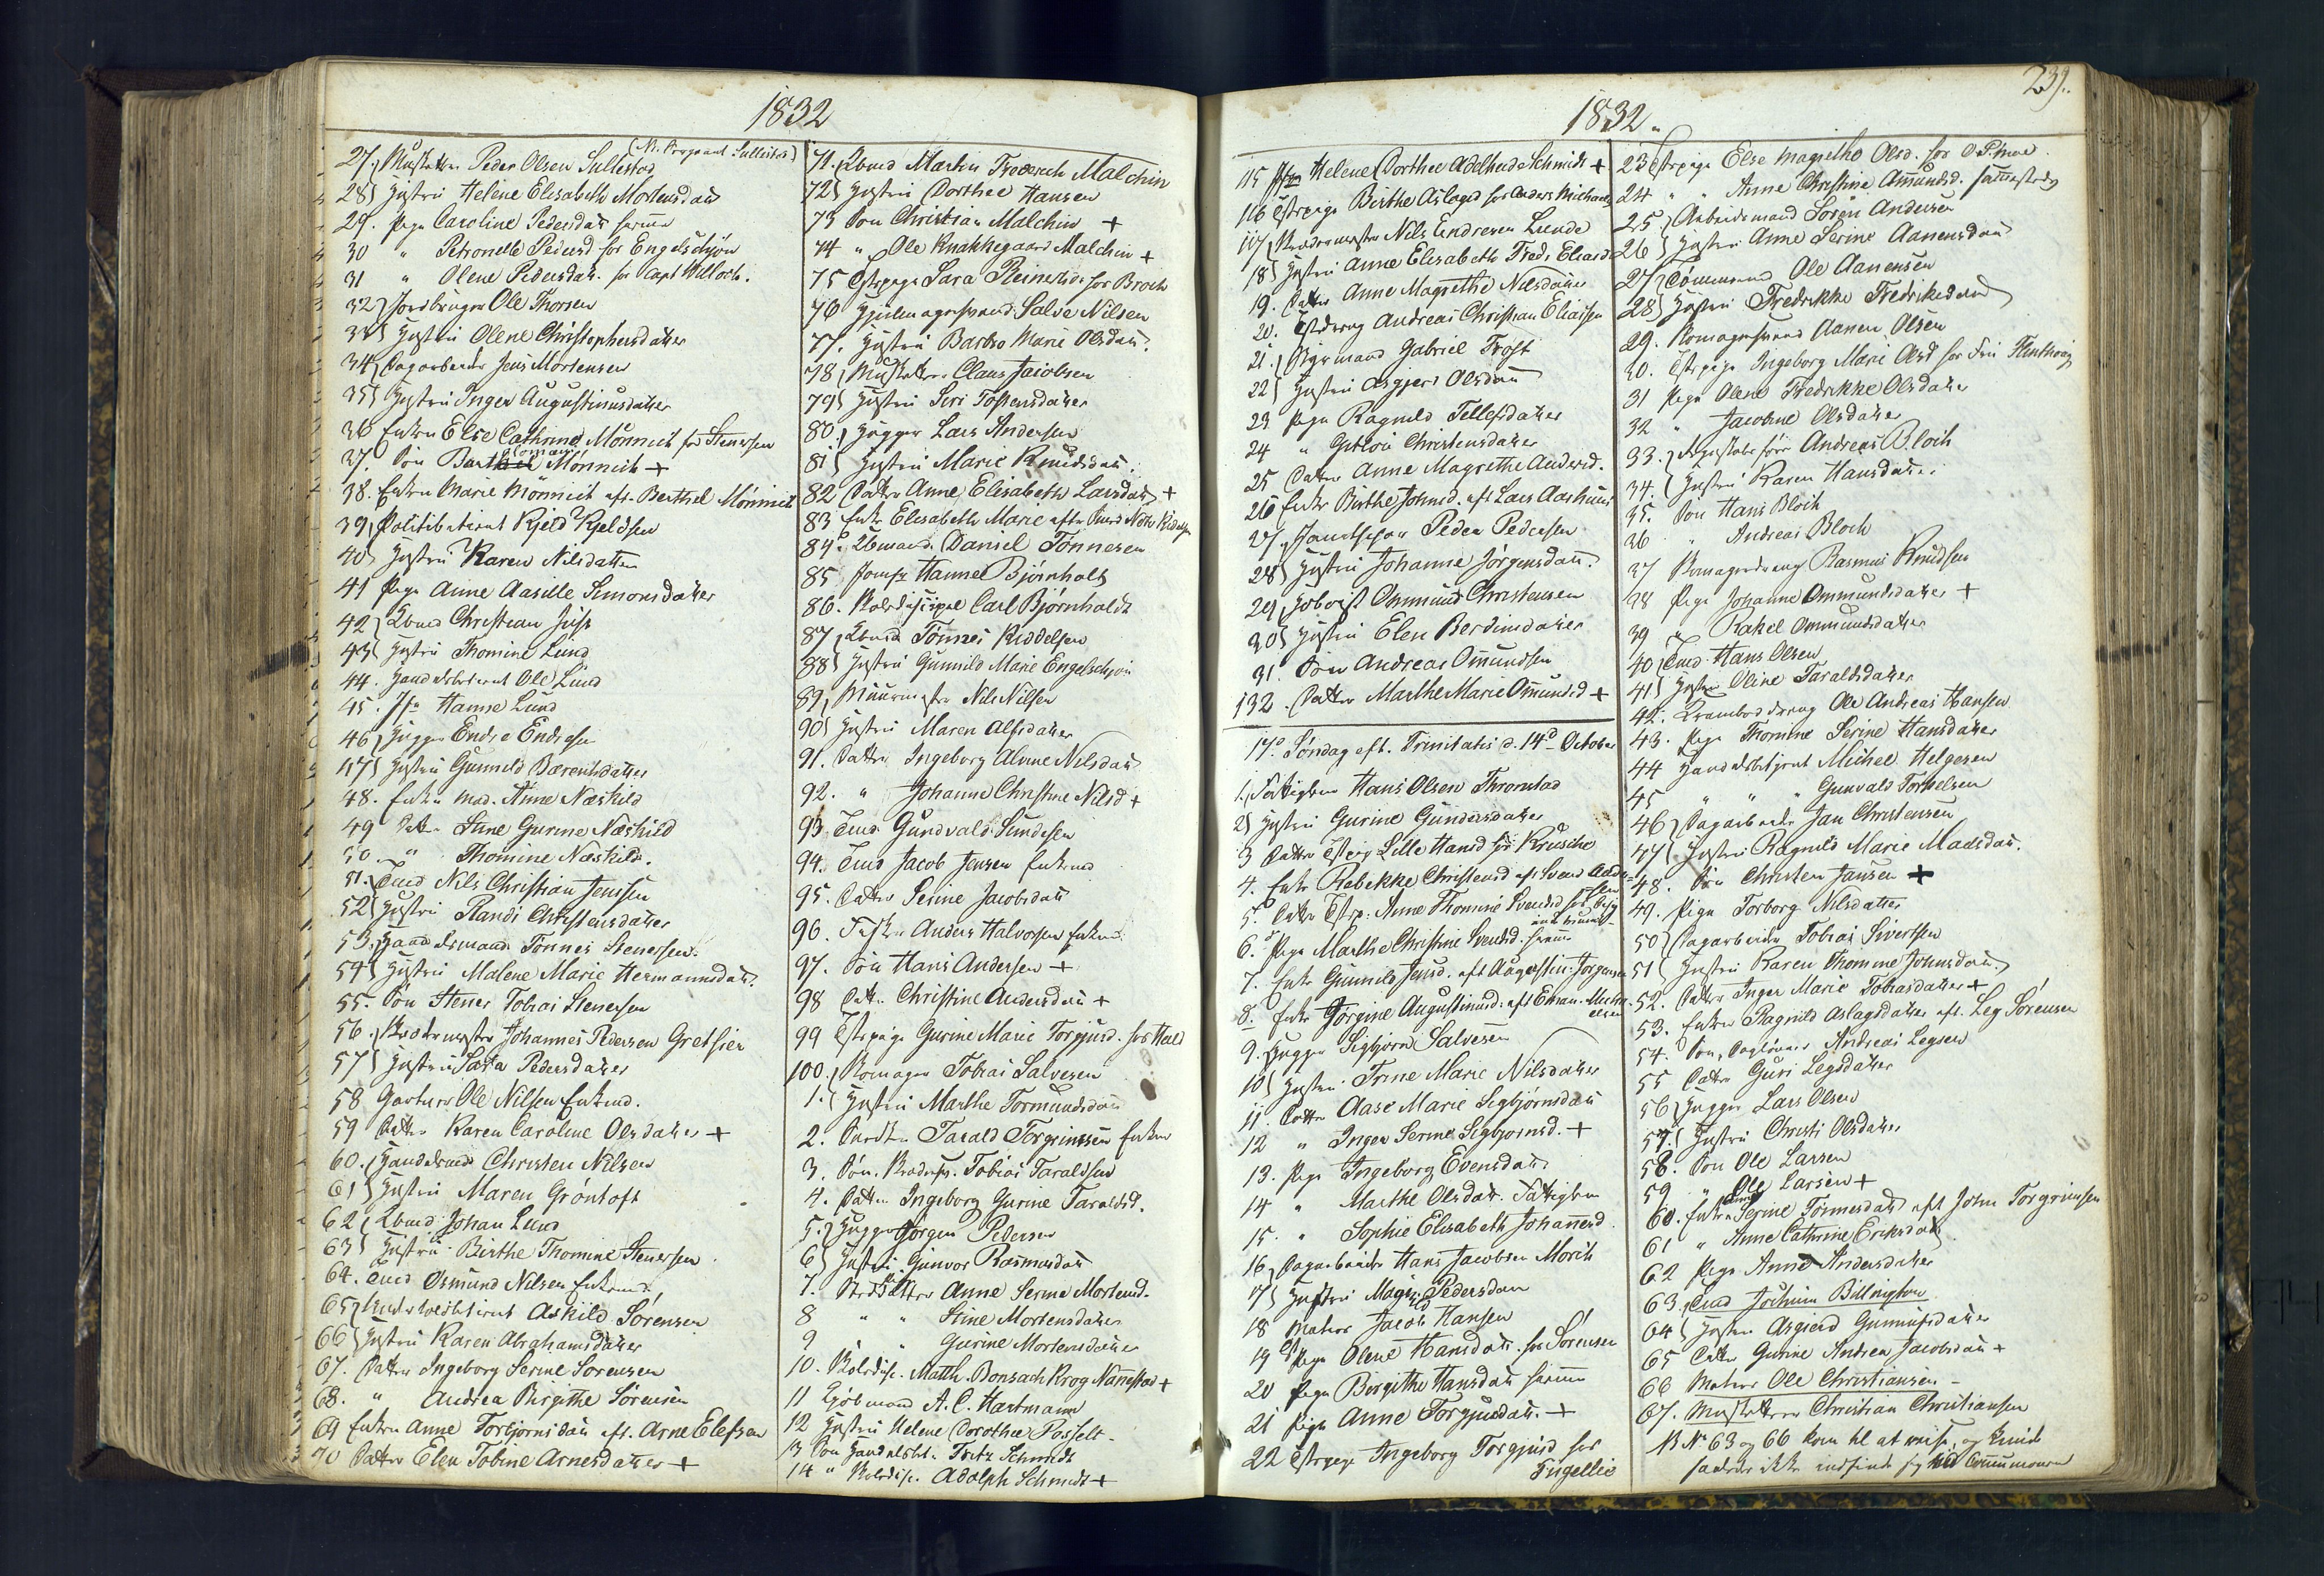 1832
27. Musketeer Peder Olsen Sullestad (N: Sergeant Sullestad)
28 Hustru Helene Elisabeth Mortensdatr
29. Pige Caroline Pedersdatr samme
30 " Petronelle Pedersd for Engelschjøn
31 " Olene Pedersdatr. for Capt Willoch.
32 Jordbruger Ole Thorsen
33 Hustru Olene Christophersdatter
34 Dagarbeider Jens Mortensen
35 Hustru Inger Augustinusdatter
36 Enken Else Cathrine Mönnich fød Stenersen
37. Søn Mönnich +
38. Enken Marie Mönnich eft. Berthel Mönnich
39 Politibetient Kjeld Kjeldsen
40 Hustru Karen Nilsdatter
41 Pige Anne Aasille Simonsdatter
42 Christian Just
43 Hustru Thomine Lund
44. Handelsbetient Ole Lund
45. Jfr Hanne Lund
46 Hugger Endre Endresen
47 Hustru Gunnild Berentsdatter
48. Enken Mad. Anne Næskild
49 Datter Stine Gurine Næskild
50. " Thomine Næskild.
51. Tmd Nils Christian Jenssen
52 Hustru Randi Christensdatter
53. Handelsmand Tönnes Stenersen.
54 Hustru Malene Marie Hermannsdatr.
55. Søn Stener Tobias Stenersen
56. Johannes Pedersen Gretsier
57 Hustru Sara Pedersdatter
58 Gartner Ole Nilsen Enkmd.
59 Datter Karen Caroline Olesdatter +
60. Handelsmd Christen Nilsen
61 Hustru Maren Gröntoft
62 Johan Lund
63 Hustru Birthe Thomine Stenersen
64. Tmd Osmund Nilsen Enkemd
65 Askild Sörensen
66 Hustru Karen Abrahamsdatter
67. Datter Ingeborg Serine Sörensen
68. " Andrea Birgithe Sörensen
69 Enken Anne Torbjörnsdatr eft. Arne Elefsen
70 Datter Elen Tobine Arnesdatter +
71. Martin Frederich Malchin
72 Hustru Dorthee Hansen
73 Søn Christian Malchin +
74 " Ole Knahkegaard Malchin +
75 Tstpige Sara Reinertsd: for Broch
76 Salve Nilsen
77. Hustru Barbro Marie Olsdatr.
78 Musketeer Claus Jacobsen
79 Hustru Siri Tostensdatter
80. Hugger Lars Andersen
81 Hustru Marie Knudsdatr.
82 Datter Anne Elisabeth Larsdatr +
83 Enke Elisabeth Marie efter
84. Daniel Tönnesen
85 Jomfr Hanne Björnholt
86. Skoledisipel Carl Björnholdt
87 Tönnes Kiddelsen
88 Hustru Gunnild Marie Engelschjön
89 Muurmester Nils Nilsen
90 Hustru Maren Alfsdatter
91. Datter Ingeborg Alvine Nilsdatr
92. " Johanne Christine Nilsd +
93 Tmd Gundvald Sundesen
94. Tmd Jacob Jensen Enkemd
95. Datter Serine Jacobsdatr
96. Anders Halvorsen Enkemd.
97. Søn Hans Andersen +
98 Datter Christine Andersdatr +
99 Tstpige Gurine Marie Torgiusd. for Hald
100. Skomager Tobias Salvesen
1. Hustru Marthe Tormundsdatr
2. Tarald Torgrimssen Enkem
3. Søn. Tobias Taraldsen
4. Datter Ingeborg Gurine Taraldsd.
5. Hugger Jörgen Pedersen
6 Hustru Gunvor Rasmusdatr
7. Steddatter Anne Serine Mortensd.
8 " " Stine Mortensdatter
9 " " Gurine Mortensdatter
10. Skoledisc. Matth. Bonsach Krog Nannestad +
11 Kjöbmand A. C. Hartmann
12 Hustru Helene Dorothea Posselt
13 Søn Handelsbt. Fritz Schmidt
14 " Skoledisc. Adolph Schmidt +
1832.
239.
115 Jfr Helene Dorthee Adelheide Schmidt +
116 Tstpige Birthe Aslagsd for Anders Michaels
117 Nils Endresen Lunde
18 Hustru Anne Elisabeth Freds Eliasd
19. Datter Anne Magrethe Nilsdatter
20. Tstdreng Andreas Christian Eliassen
21. Styrmand Gabriel Trost
22 Hustru Asgjerd Olsdatr
23 Pige Ragnild Tellefsdatter
24 " Gurloù Christensdatter
25 Datter Anne Magrethe Andersd.
26 Enke Birthe Johnsd. eft Lars Aashuus
27. Peder Pedersen
28 Hustru Johanne Jörgensdatr.
29 Hoboist Ommund Christensen
30 Hustru Elen Berdinesdatter
31. Søn Andreas Omundsen
132. Datter Marthe Marie Omundsd +
17d Søndag eft. Trinitatis d. 14d October
1. Fattiglem Hans Olsen Thromstad
2 Hustru Gurine Gundersdatter
3 Datter Tstpig Lille Hansd for Krusche
4. Enke Rebekke Christensd eft Svend
5. Datter Tstp: Anne Thomine Svendsd for
6. Pige Marthe Christine Svendsd. samme
7. Enke Gunnild Jensd. eft Augustin. Jorgensen
8. Enke Jörgine Augustinusd: eft Eman.
9. Hugger Sigbjörn Salvesen
10 Hustru. Trine Marie Nilsdatter
11. Datter Aase Marie Sigbjörnsdatr
12 " Inger Serine Sigbjörnsd. +
13. Pige Ingeborg Evensdatr
14 " Marthe Olsdatr. Fattiglem
15. " Sophie Elisabeth Johannesd.
16 Dagarbeider Hans Jacobsen Morch
17 Hustru Magr: Pedersdatr
18 Matros Jacob Hansen
19 Pige Olene Hansdatr. for Sörensen
20 Pige Borgithe Hansdatr samme
21 Pige Anne Torgiusdatr. +
22 Tstpige Ingeborg Torgjusd for
Fugellie
23 Tstpige Else Magrethe Olsd. for O. P. Moe.
24 " " Anne Christine Amundsd. sammesteds
25 Arbeidsmand Soren Andersen
26 Hustru Anne Serine Aanensdatr
27 Tömmermd Ole Aanensen
28 Hustru Fredrikke Fredriksdatr
29. Aanen Olsen
30. Tstpige Ingeborg Marie Olsd for Fru
31 Pige Olene Fredrikke Olsdatter
32 " Jacobine Olsdatter
33. Andreas Bloch
34. Hustru Karen Hansdatter
35. Søn Hans Bloch
36 " Andreas Bloch
37 Skomagerdreng Rasmus Knudsen
38 Pige Johanne Ommundsdatter +
39 " Rakel Ommundsdatter
40 Tmd. Hans Olsen
41 Hustru Oline Taraldsdatter
42. Kramboddreng Ole Andreas Hansen
43. Pige Thomine Serine Hansdatter
44 Handelsbetjent Michel Helgesen
45 " " Gunvald Torkelsen
46 Dagarbeider Jan Christensen
47 Hustru Ragnild Marie Madsdatr.
48. Søn Christen Jansen +
49. Pige Torborg Nilsdatter
50 Dagarbeider Tobias Sivertsen
51 Hustru Karen Thomine Johnsdatr.
52. Datter Inger Marie Tobiasdatter +
53. Enken Ragnild Aslagsdatter eft. Leg Sörensen
54. Søn, Daglønner Andreas Legsen
55 Datter Guri Legsdatter
56 Hugger Lars Olsen
57. Hustru Christi Olsdatter
58. Søn Ole Larsen
59 " Ole Larsen +
60. Enken Serine Tönnesdatr eft John Torgrimsen
61 " Anne Cathrine Ericksdatr.
62 Pige Anne Andersdatter
63. Tmd Jochum Billington
64 Hustru Asgierd Gunnufsdatter
65 Datter Gurine Andrea Jacobsdatr +
66 Matros Ole Christiansen -
67. Musketeer Christian Christiansen
NB No 63 og 66 kom til at reise, og kunde
saaledes ikke indfinde sig ved Communionen